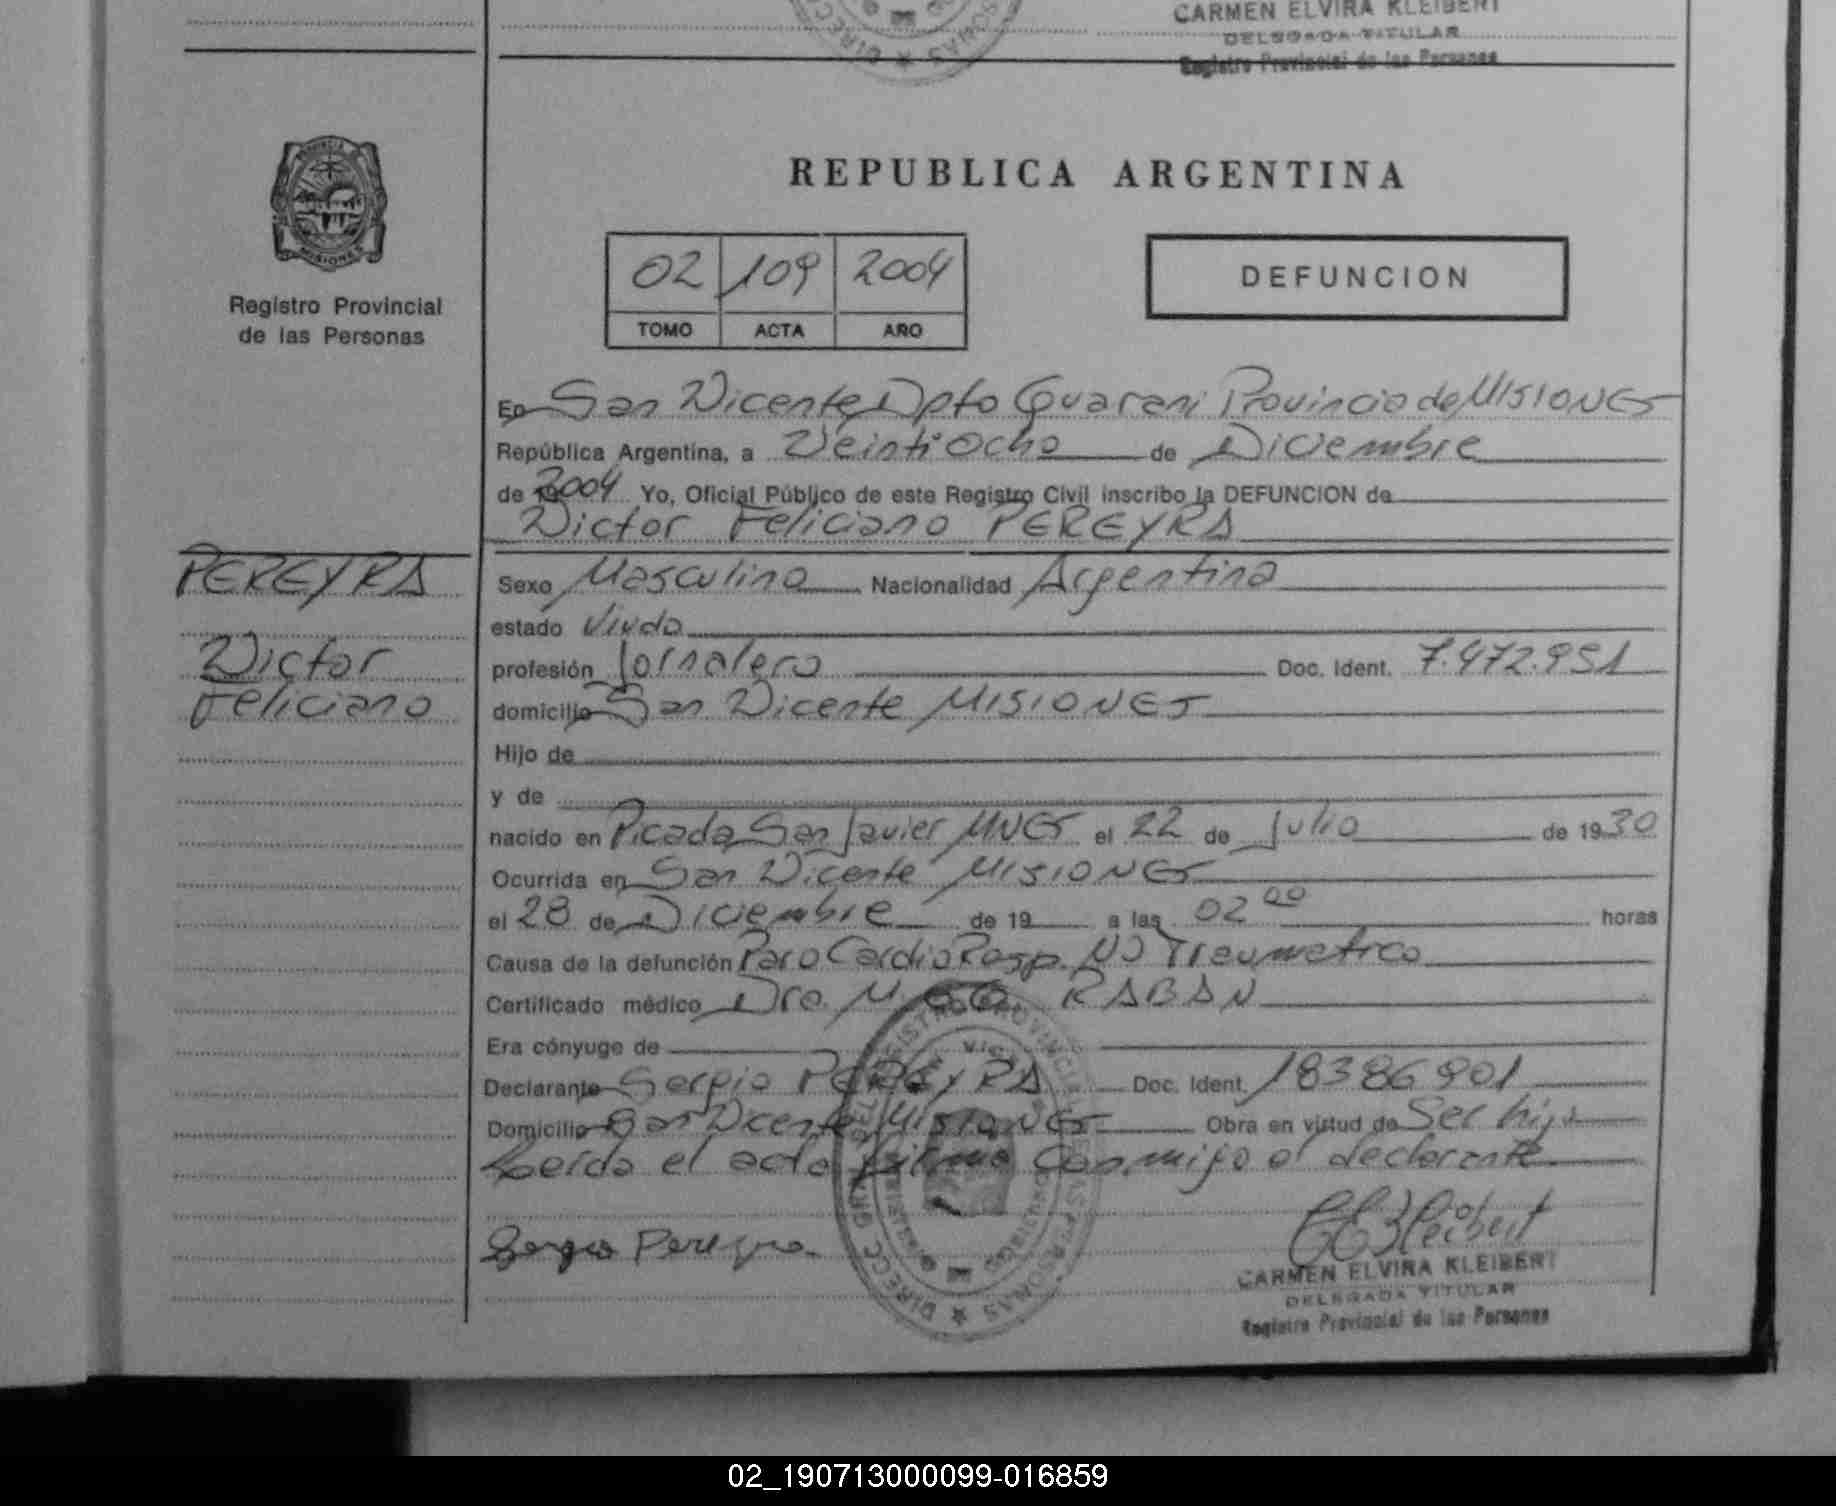 CARMEN ELVIRA KLEIBERT
DELEGADA TITULAR
Registro Provincial de las Personas
PROVINCIA
MISIONES
Registro Provincial
de las Personas
REPUBLICA ARGENTINA
02 109 2004
TOMO ACTA AÑO
DEFUNCION
En San Vicente Dpto Guarani Provincia de MISIONES
República Argentina, a Veinti Ocho de Diciembre
de 2004 Yo, Oficial Público de este Registro Civil inscribo la DEFUNCION de
Victor Feliciano PEREYRA
PEREYRA
Victor
Feliciano
Sexo Masculino Nacionalidad Argentina
estado Viudo
profesión Jornalero Doc. Ident. 7.472.951
domicilio San Vicente MISIONES
Hijo de
y de
nacido en Picada San Javier MNES el 22 de Julio de 1930
Ocurrida en San Vicente MISIONES
el 28 de Diciembre de 19 a las 02 00 horas
Causa de la defunción Paro Cardio Resp. NO Traumatico
Certificado médico Dra. M. RABAN
Era cónyuge de
Declarante Sergio PEREYRA Doc. Ident. 18386901
Domicilio San Vicente MISIONES Obra en virtud de Ser hijo
Leida el acta firma conmigo el declarante
Sergio Pereyra
CARMEN ELVIRA KLEIBERT
DELEGADA TITULAR
Registro Provincial de las Personas
02_190713000099-016859